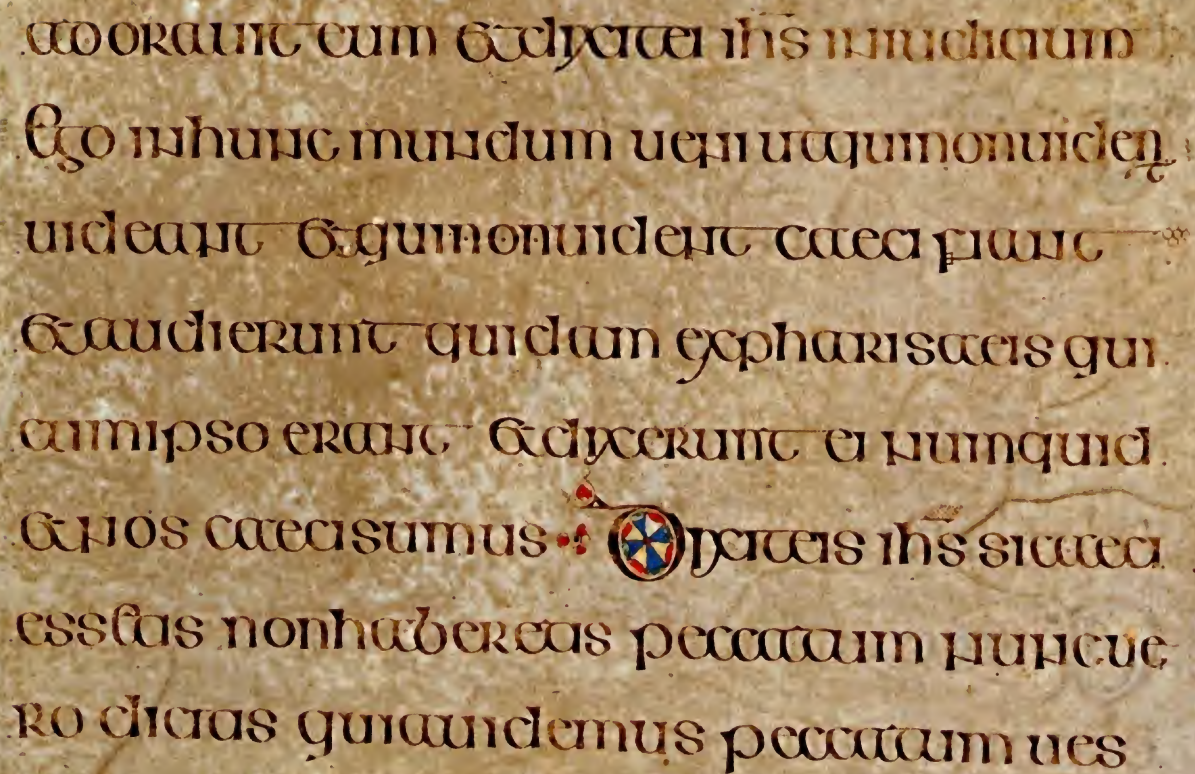 adorauit eum et dixit ei ihs iniudicium
Ego inhunc mundum ueni utquinonuident
uideant et quinonuident caeci fiant
et audierunt quidam expharisaeis qui
cumipso erant et dixerunt ei numquid
et nos caecisumus Dixit eis ihs si caeci
essetis nonhaberetis peccatum nuncue
ro dicitis quiauidemus peccatum ues